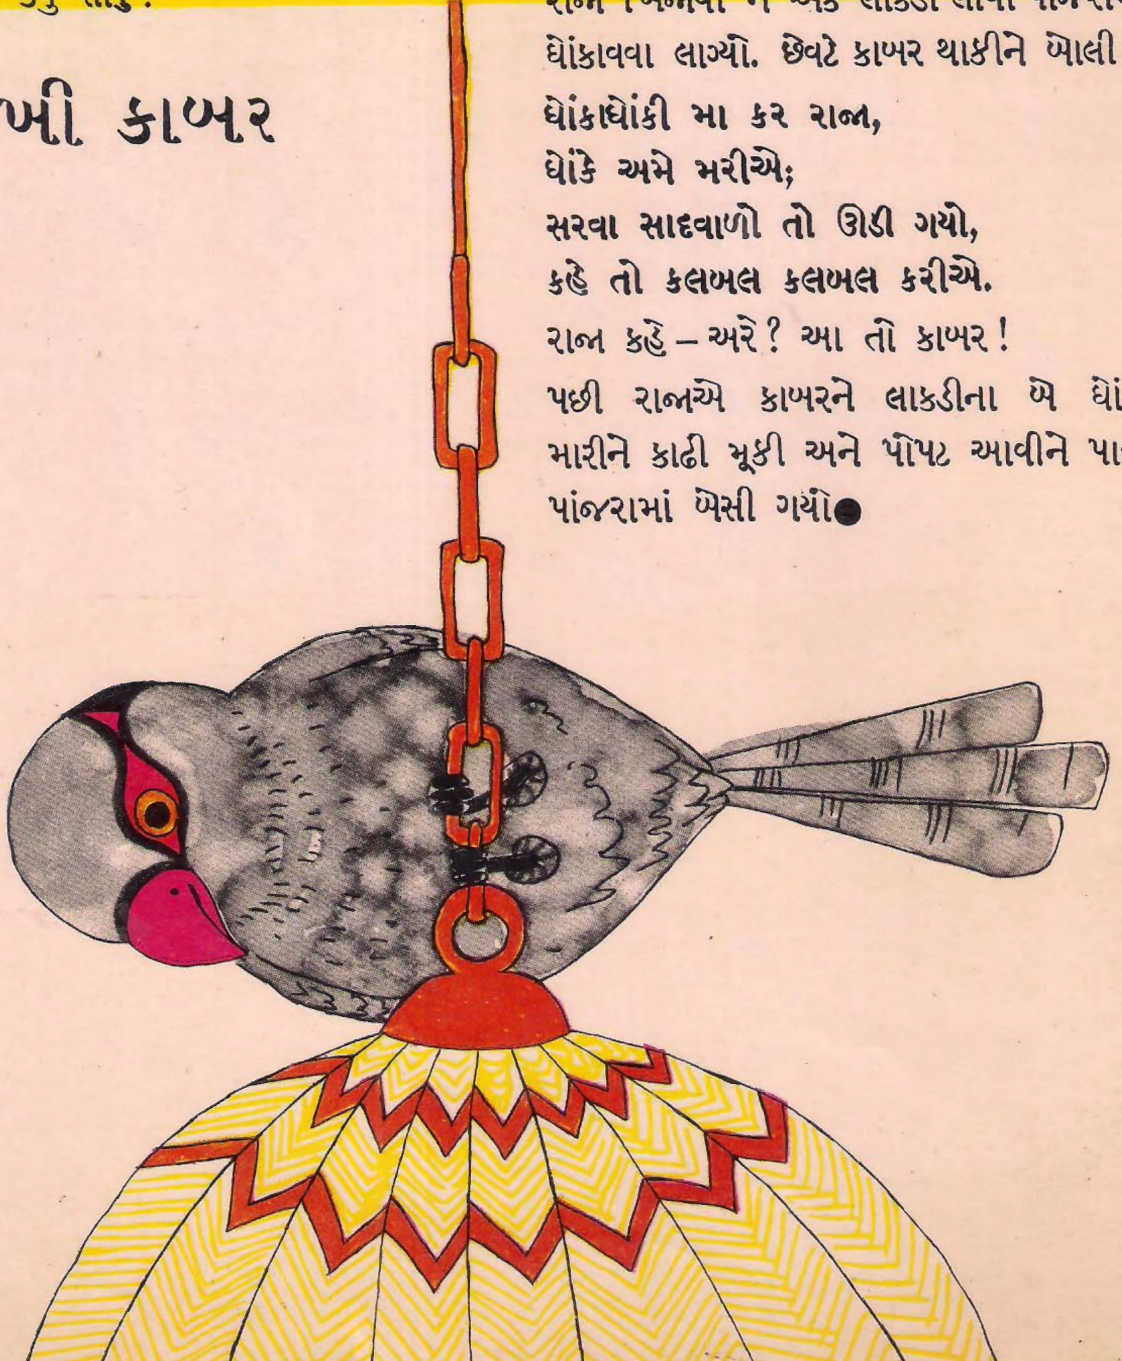 ખી કાબર
ધોંકાવવા લાગ્યો. છેવટે કાબર થાકીને બોલી
ધોંકાધોંકી મા કર રાજા,
ધોંકે અમે મરીએ;
સરવા સાદવાળો તો ઊડી ગયો,
કહે તો કલબલ કલબલ કરીએ.
રાજા કહે – અરે? આ તો કાબર!
પછી રાજાએ કાબરને લાકડીના બે ધોં
મારીને કાઢી મૂકી અને પોપટ આવીને પા
પાંજરામાં બેસી ગયો●